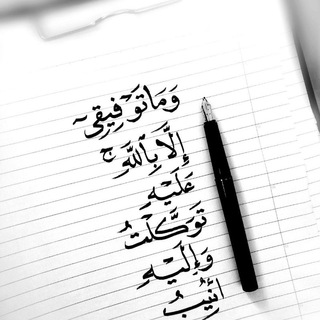 وَمَا تَوْفِيقِىٓ
إِلَّا بِٱللَّهِ ۚ
عَلَيْهِ
تَوَكَّلْتُ
وَإِلَيْهِ
أُنِيبُ